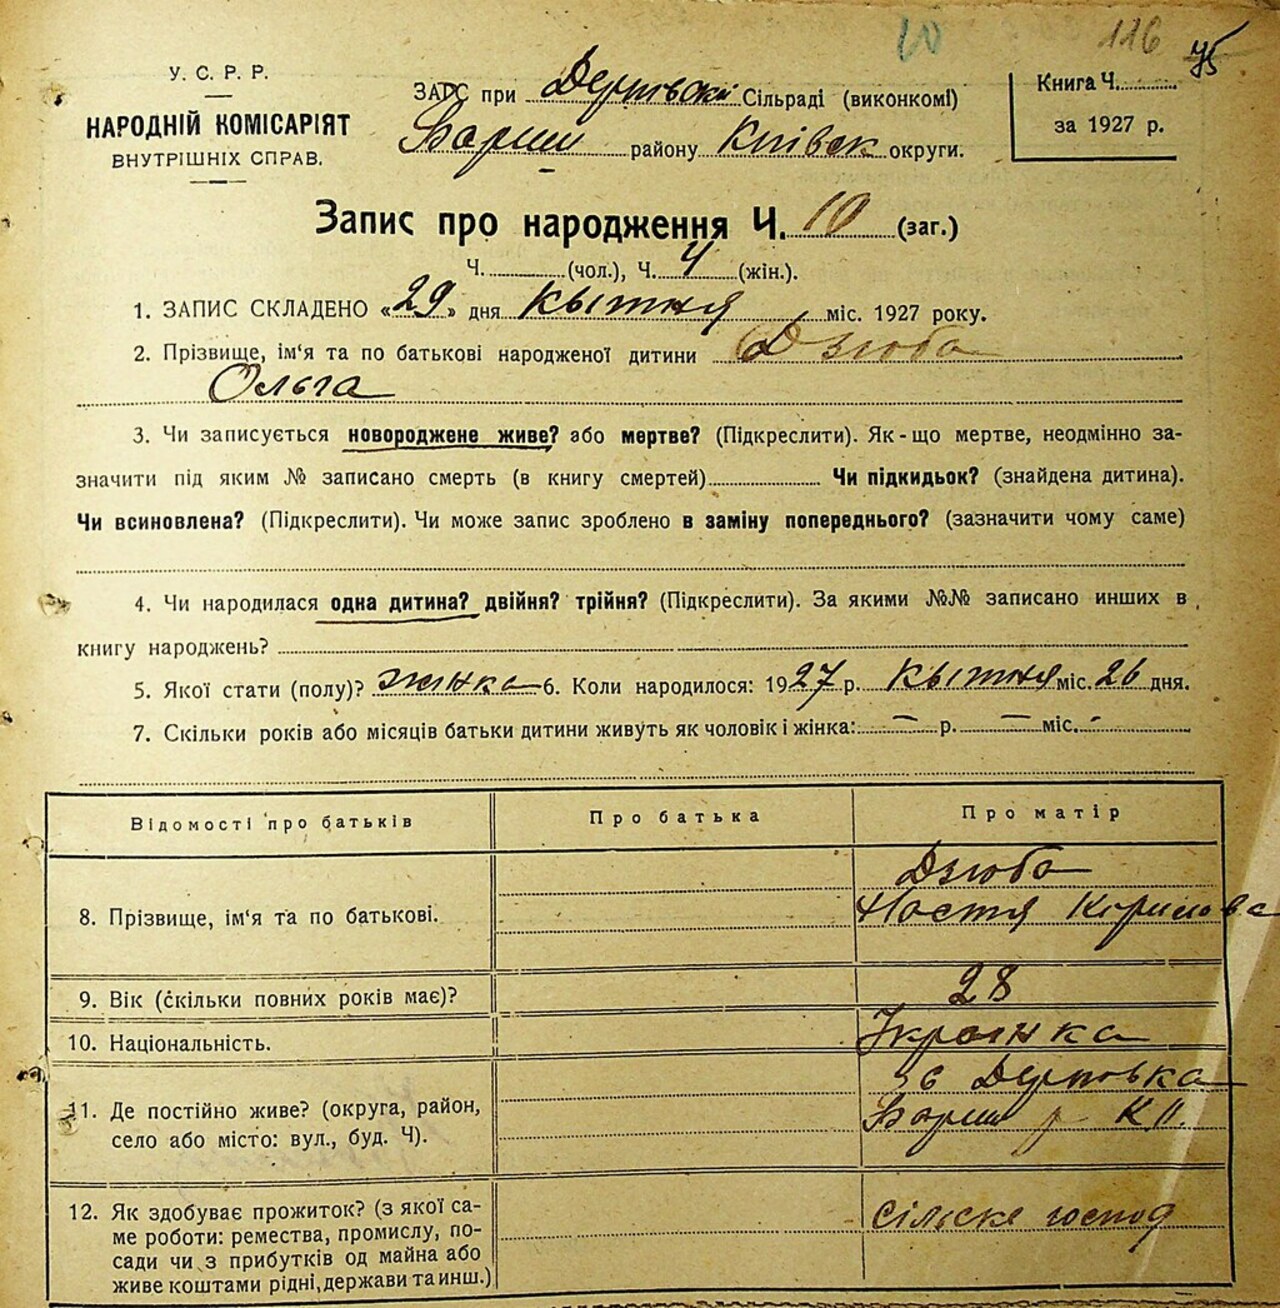 10 116 75
У. С. Р. Р.
НАРОДНІЙ КОМІСАРІЯТ
ВНУТРІШНІХ СПРАВ.
ЗАГС при Сільраді (виконкомі)
Бориш району Київськ округи.
Книга Ч.
за 1927 р.
Запис про народження Ч. 10 (заг.)
Ч. (чол.), Ч. 4 (жін.).
1. ЗАПИС СКЛАДЕНО «29» дня Квітня міс. 1927 року.
2. Прізвище, ім'я та по батькові народженої дитини Дзюба
Ольга
3. Чи записується новороджене живе? або мертве? (Підкреслити). Як-що мертве, неодмінно за-
значити під яким № записано смерть (в книгу смертей) Чи підкидьок? (знайдена дитина).
Чи всиновлена? (Підкреслити). Чи може запис зроблено в заміну попереднього? (зазначити чому саме)
4. Чи народилася одна дитина? двійня? трійня? (Підкреслити). За якими №№ записано инших в
книгу народжень?
5. Якої стати (полу)? жінка 6. Коли народилося: 1927 р. Квітня міс. 26 дня.
7. Скільки років або місяців батьки дитини живуть як чоловік і жінка: — р. — міс. -
Відомості про батьків Про батька Про матір
Дзюба
8. Прізвище, ім'я та по батькові. Настя Кирилова
9. Вік (скільки повних років має)? 28
10. Національність. Українка
11. Де постійно живе? (округа, район,
село або місто: вул., буд. Ч). Бориш р К П.
12. Як здобуває прожиток? (з якої са- Сільске господ
ме роботи: ремества, промислу, по-
сади чи з прибутків од майна або
живе коштами рідні, держави та инш.)